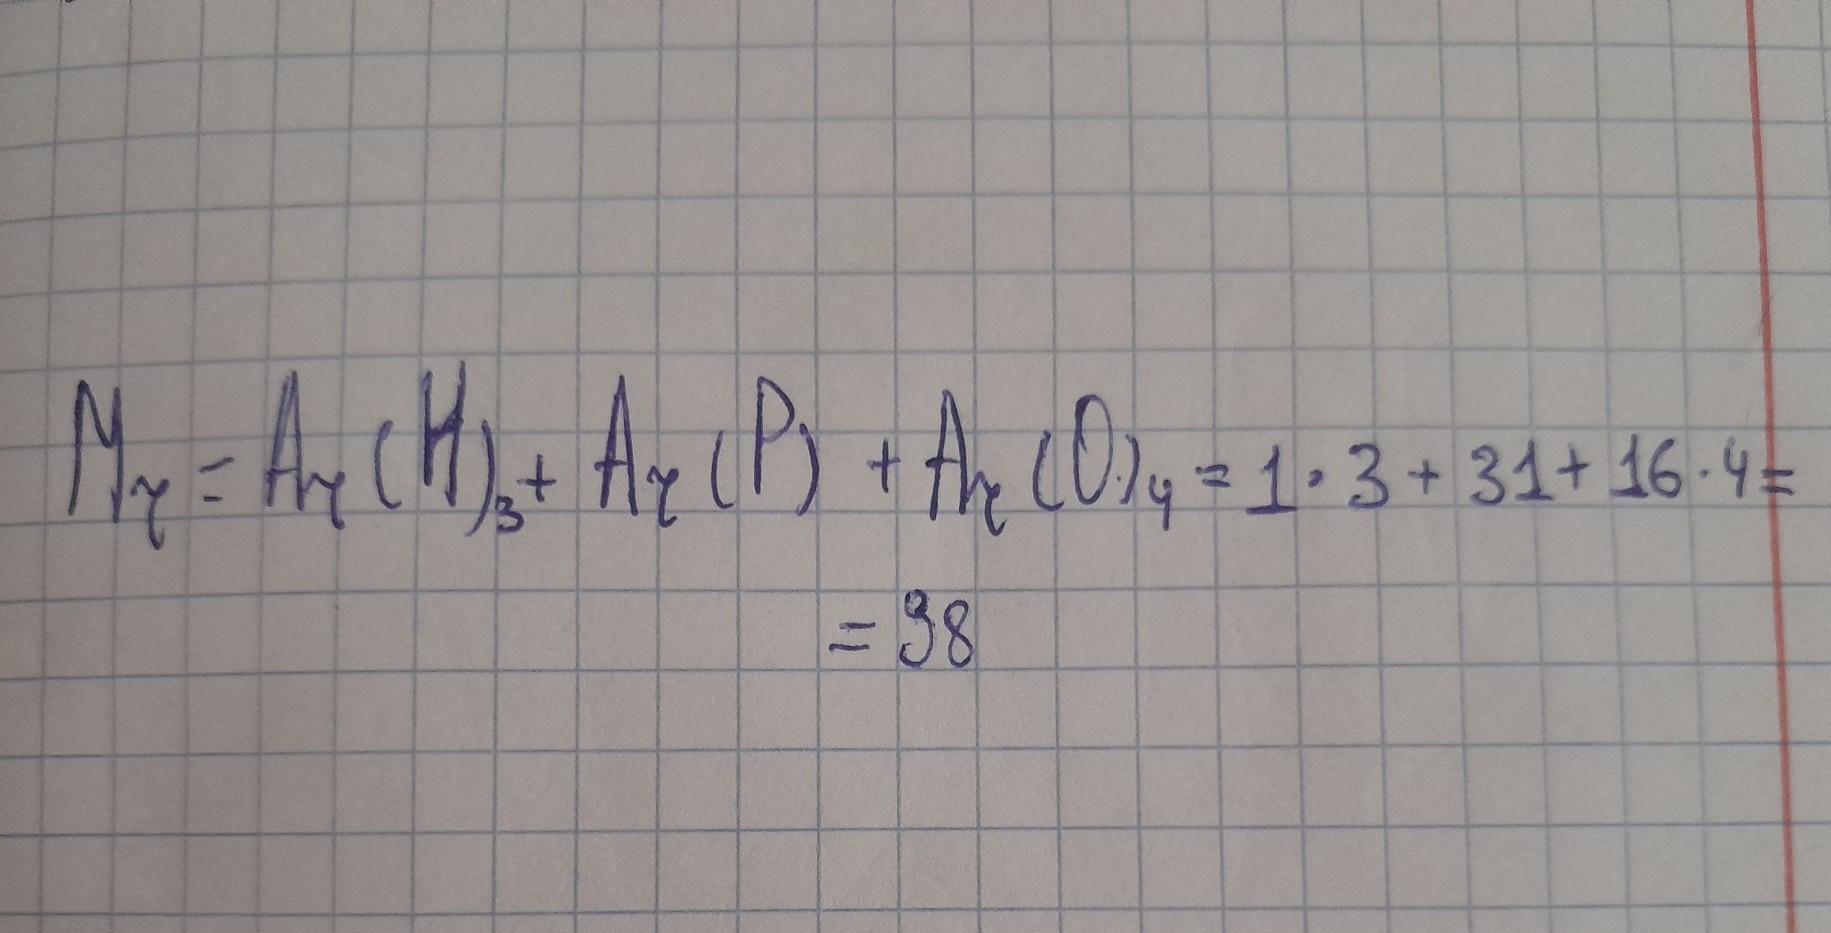 Mr = Ar (H)₃ + Ar (P) + Ar (O)₄ = 1 · 3 + 31 + 16 · 4 =
= 98